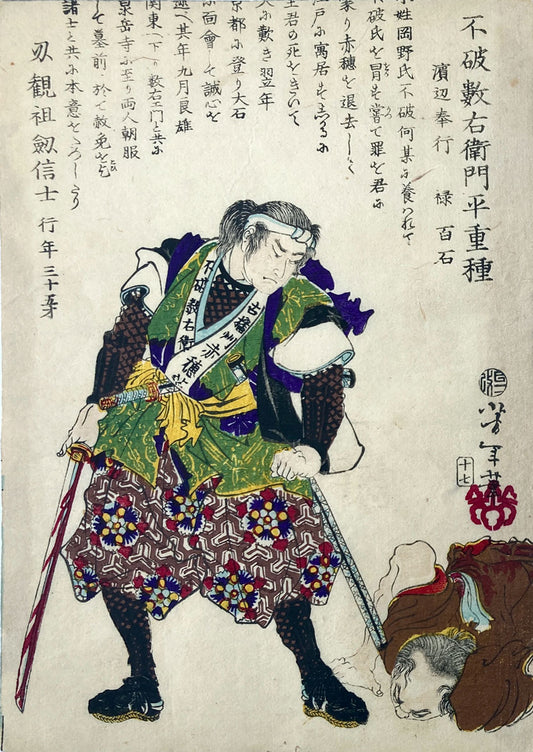 不破数右衛門平重種
濱辺奉行　禄　百石
本姓岡野氏不破何某に養はれて
不破氏を冒す嘗て罪を君に
蒙り赤穂を退去して
江戸に寓居す
主君の死をきいて
大に歎き翌年
京都に登り大石
に面會して誠心を
述べ其年九月良雄
関東へ下り数右エ門と共に
泉岳寺に至り両人朝服
して墓前に於て赦免を乞
諸士と共に本意をたつしたり
刃観祖劔信士　行年三十五才
不破数右衛
古播州赤穂
芳年筆
十七